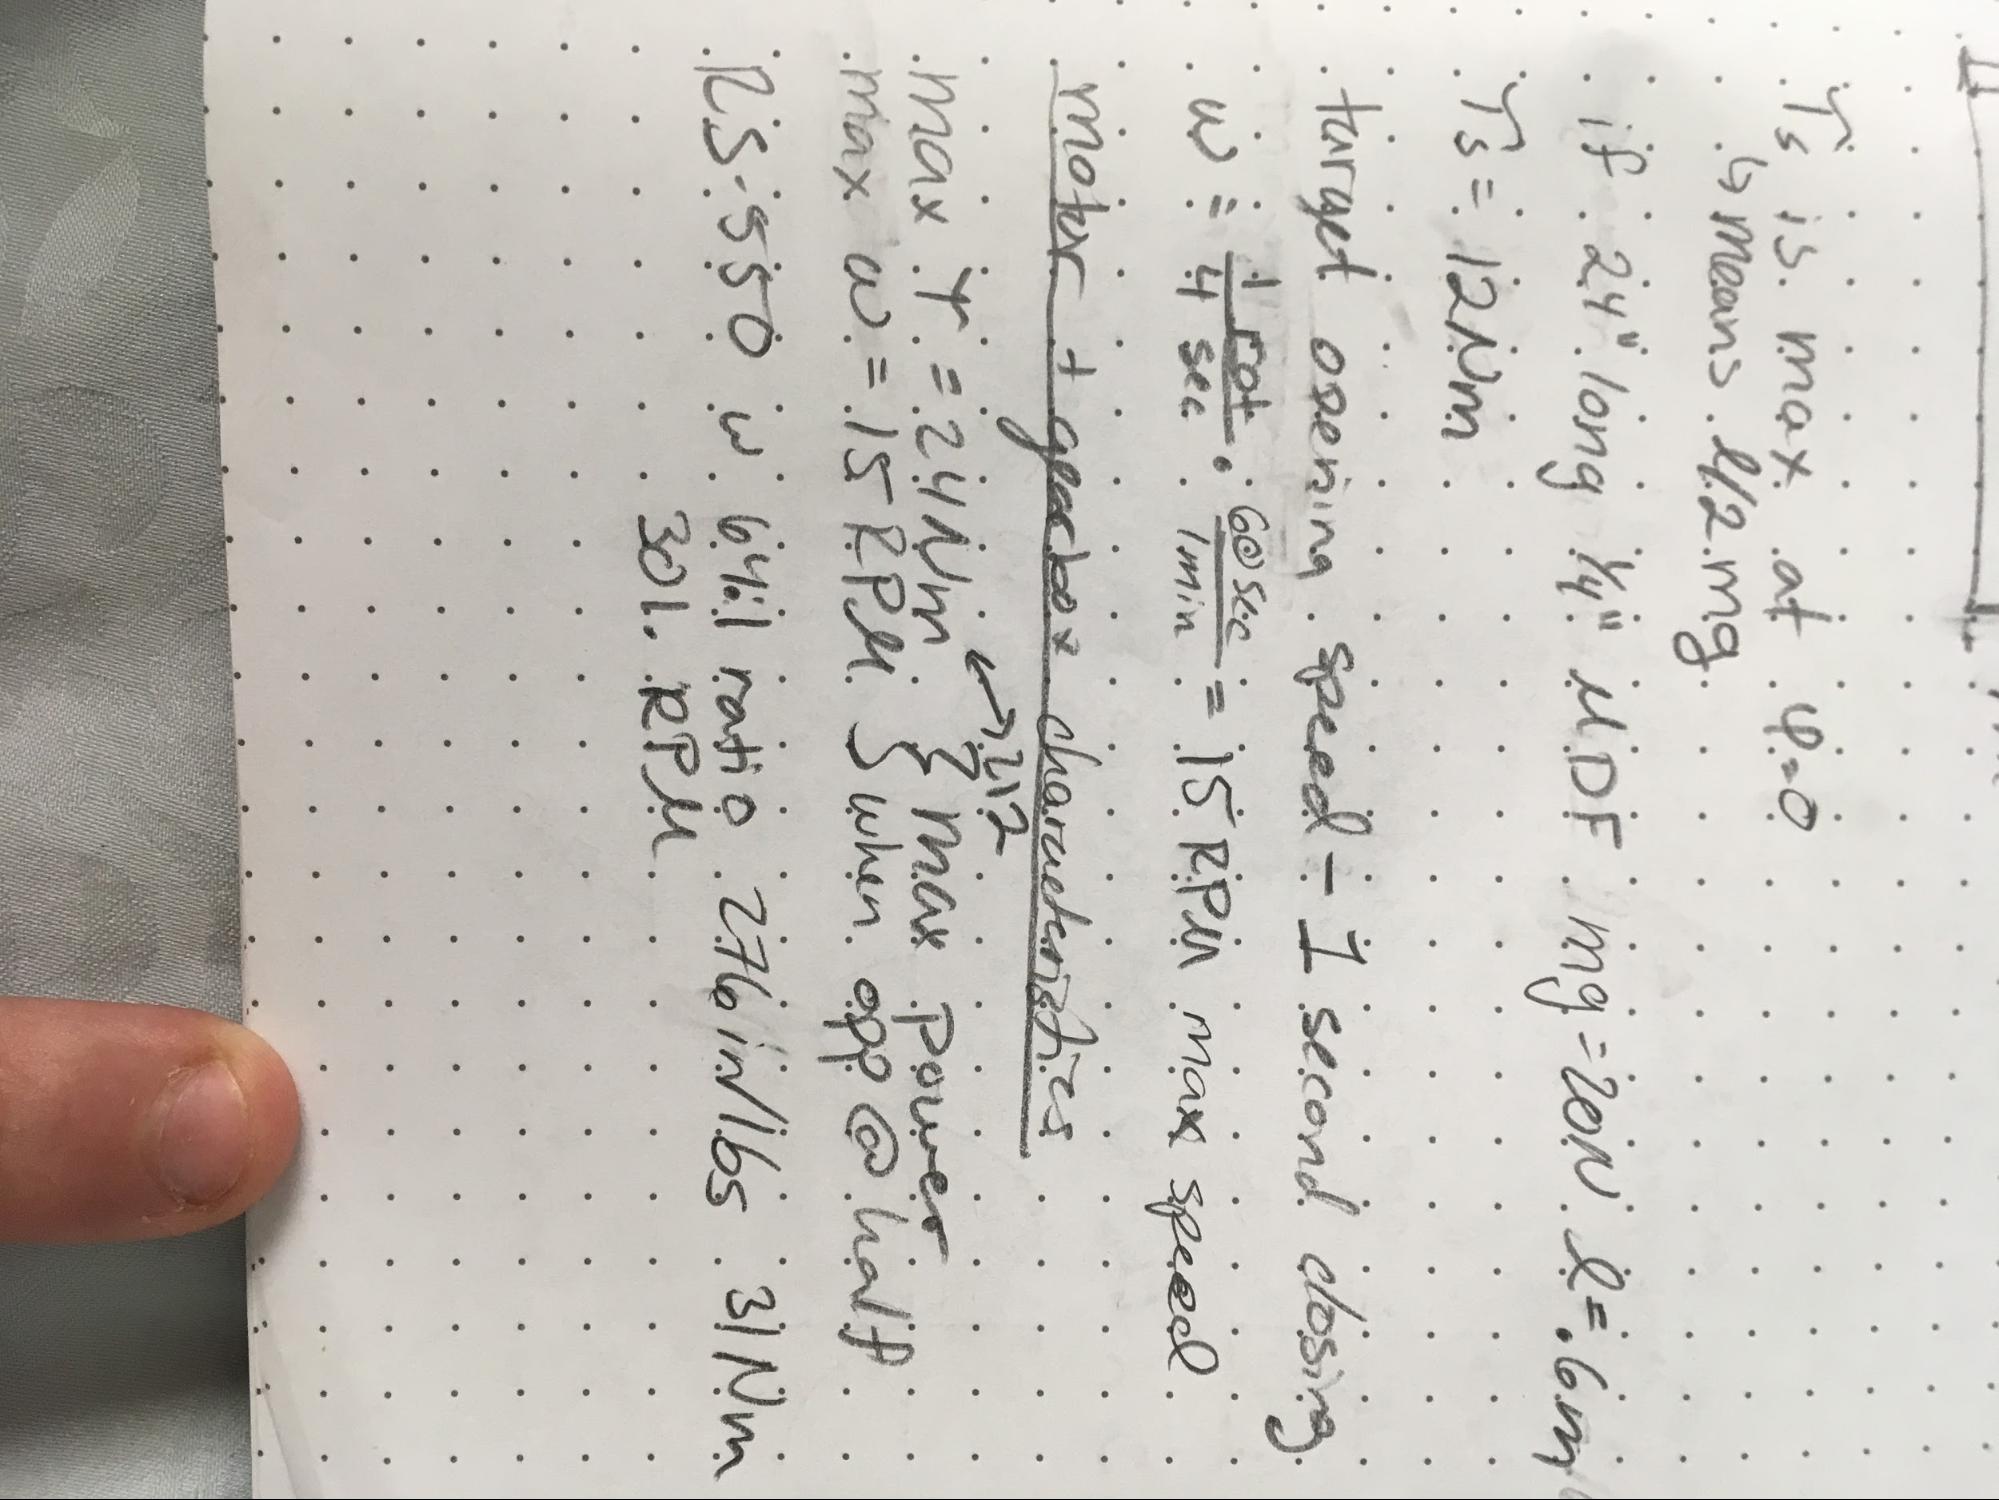 τs is max at φ=0
↳ means l/2 mg
if 24" long 1/4" MDF mg=20N l=.6m
τs = 12Nm
target opening speed - 1 second closing
ω = 1 rot / 4 sec · 60 sec / 1 min = 15 RPM max speed
motor + gearbox characteristics
max τ = 24Nm } max power
max ω = 15 RPM } when opp @ half
RS-550 w 64:1 ratio 276 in/lbs 31Nm
301. RPM